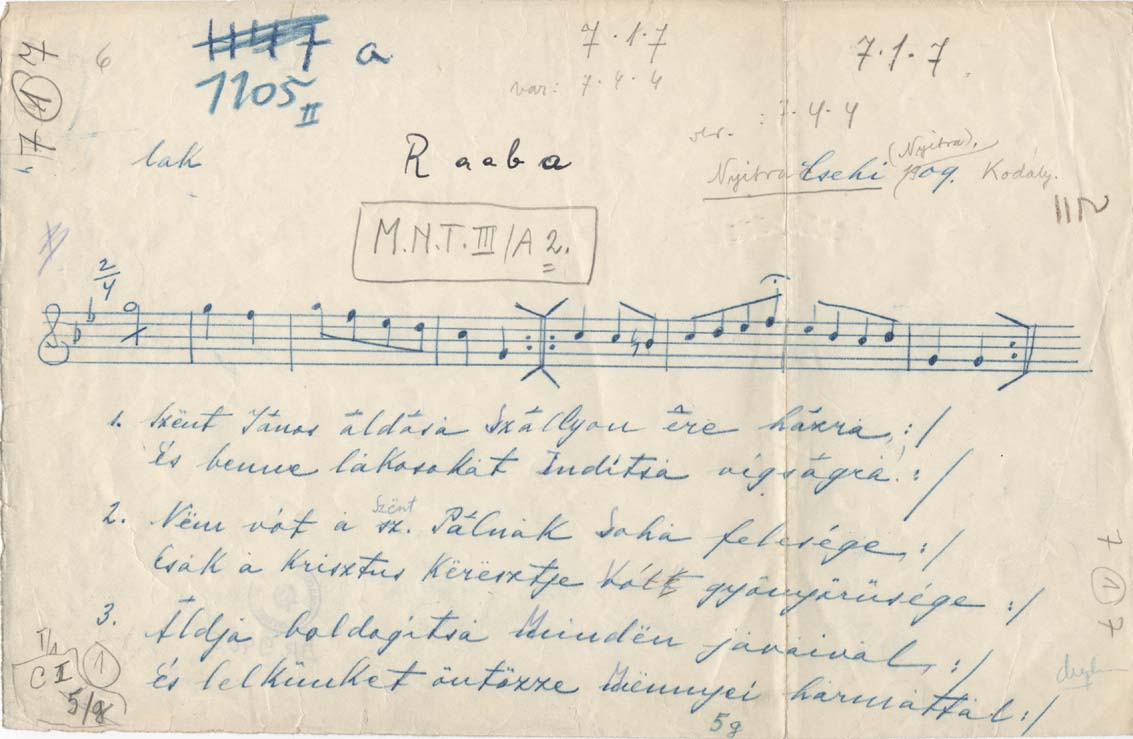 7 ① 7
6
1105 II
a
7.1.7
var: 7.4.4
7.1.7
: 7.4.4
lak
Raaba
Nyitra Csehi (Nyitra). 909. Kodály.
M.N.T. III/A 2.
2/4
1. Szënt János áldása Szállyon ëre házra :/
És benne lákosokát Indítsa vígságrá :/
2. Nëm vót á Szënt sz. Pálnák Soha felesége :/
Csák á Krisztus Kërësztje Vólt gyönyörüsége :/
3. Áldja boldogítsa Mindën jáváivál :/
És lelkünket öntözze Mënnyei hármáttál :/
T/1
C I ①
5/g
5g
7 ① 7